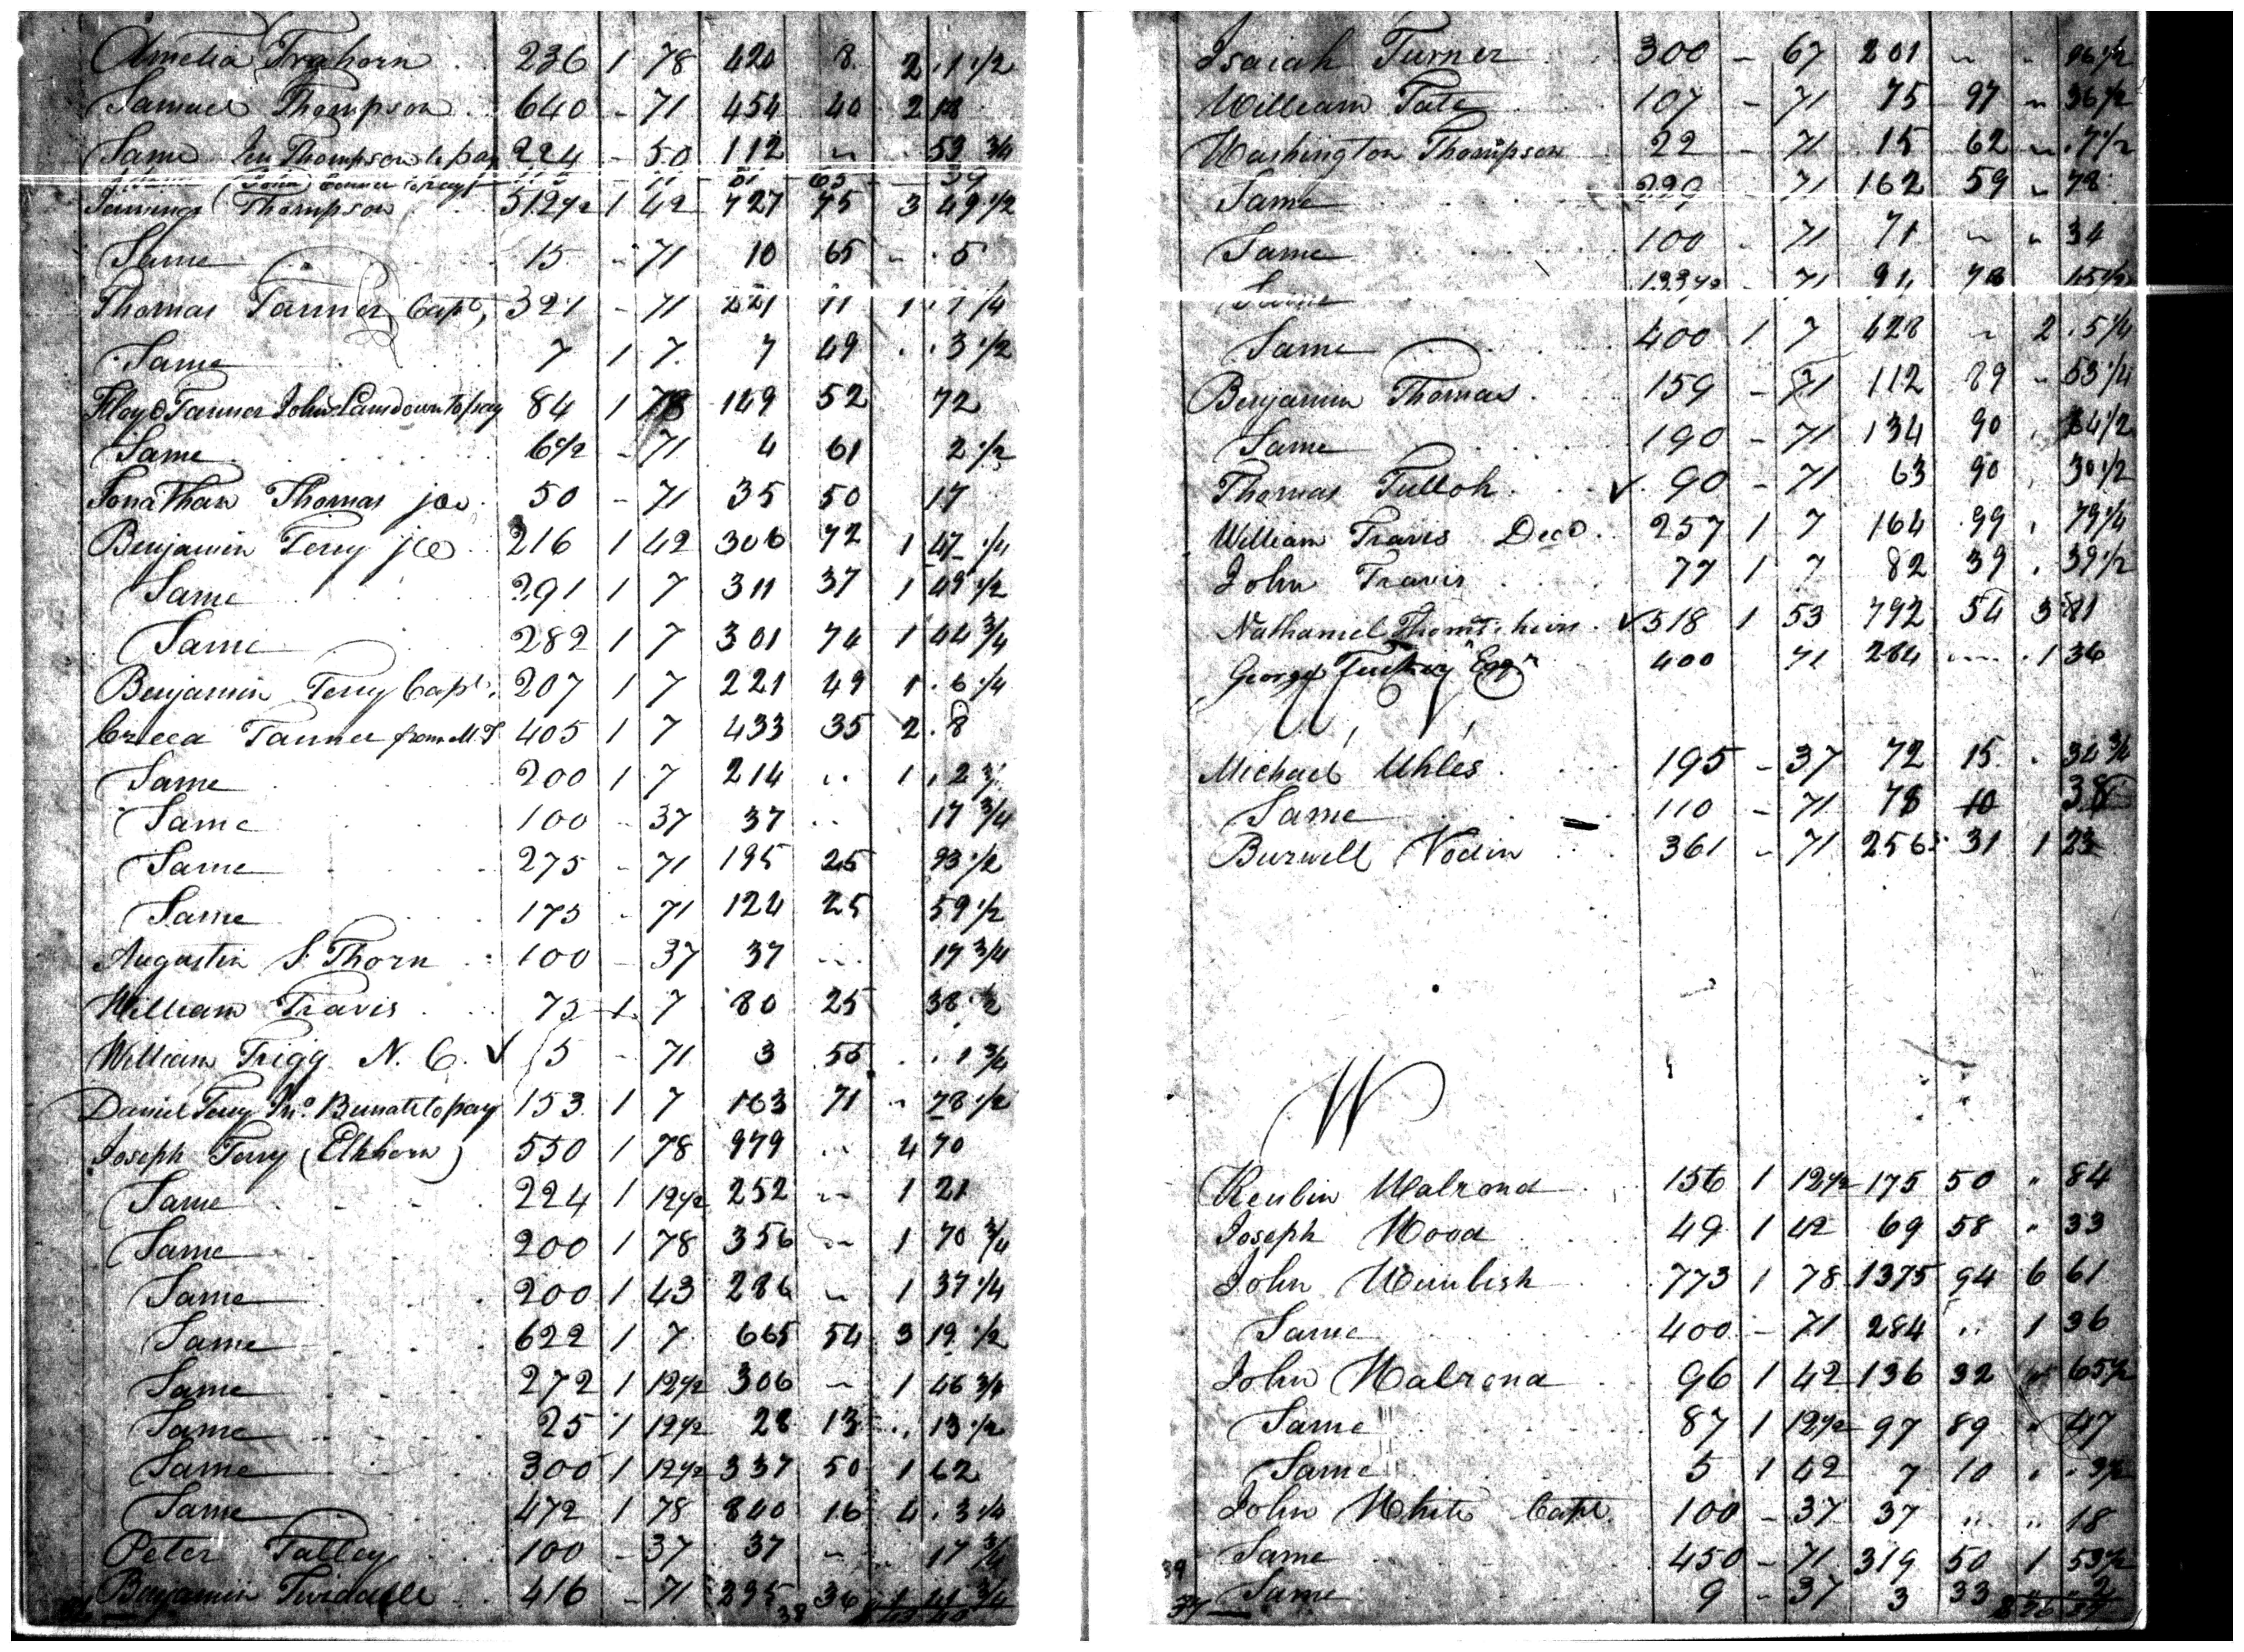 Amelia Trahorn 236 1 78 420 8 2 .1 1/2
Samuel Thompson 640 - 71 454 40 2 18
Same Thompson to pay 224 - 50 112 " . 53 3/4
Jennings Thompson 512 1/2 1 42 727 75 3 49 1/2
Same 15 - 71 10 65 - . 5
Thomas Tanner Capt, 321 - 71 221 11 1 . 7 1/4
Same 7 1 7 7 49 . . 3 1/2
Floyd Tanner John Lansdown to pay 84 1 78 149 52 72
Same 6 1/2 - 71 4 61 2 1/2
Jonathan Thomas 50 - 71 35 50 17
Benjamin Terry 216 1 42 306 72 1 47 1/4
Same 291 1 7 311 37 1 49 1/2
Same 282 1 7 301 74 1 44 3/4
Benjamin Terry Capt. 207 1 7 221 49 1 . 6 1/4
Creed Tanner from M.T 405 1 7 433 35 2 . 8
Same 200 1 7 214 .. 1 . 2 3/4
Same 100 - 37 37 .. . 17 3/4
Same 275 - 71 195 25 93 1/2
Same 175 - 71 124 25 59 1/2
Augustin S. Thorn 100 - 37 37 ... 17 3/4
William Travis 75 1 7 80 25 38 1/2
William Trigg N. C. ✓ 5 - 71 3 55 . . 1 3/4
Daniel Terry to pay 153 1 7 163 71 " 78 1/2
Joseph Terry (Elkhorn) 550 1 78 979 .. 4 70
Same 224 1 12 1/2 252 " 1 21
Same 200 1 78 356 " 1 70 3/4
Same 200 1 43 286 " 1 37 1/4
Same 622 1 7 665 54 3 19 1/2
Same 272 1 12 1/2 306 - 1 46 3/4
Same 25 1 12 1/2 28 13 .. 13 1/2
Same 300 1 12 1/2 337 50 1 62
Same 472 1 78 840 16 4 . 3 1/4
Peter Talley 100 - 37 37 " .. 17 3/4
Benjamin Twiddell 416 - 71 295 36 1 41 3/4
Isaiah Turner 300 - 67 201 " - 96 1/2
William Tate 107 - 71 75 97 " 36 1/2
Washington Thompson 22 - 71 15 62 " . 7 1/2
Same 229 - 71 162 59 " 78
Same 100 - 71 71 " " 34
Same 133 1/2 - 71 94 78 45 1/2
Same 400 1 7 428 " 2 . 5 1/4
Benjamin Thomas 159 - 71 112 89 - 53 1/4
Same 190 - 71 134 90 . 64 1/2
Thomas Tulloh ✓ 90 - 71 63 90 . 30 1/2
William Travis Decd. 257 1 7 164 99 . 79 1/4
John Travis 77 1 7 82 39 . 39 1/2
Nathaniel heirs ✓ 518 1 53 792 54 3 81
George Tucker Esqr 400 71 284 ... 1 36
U, V,
Michael Uhles 195 - 37 72 15 . 34 3/4
Same 110 - 71 78 10 38
Burwell Vodin 361 - 71 256 31 1 23
W
Reubin Walrond 156 1 12 1/2 175 50 " 84
Joseph Wood 49 1 42 69 58 " 33
John Wimbish 773 1 78 1375 94 6 61
Same 400 - 71 284 .. 1 36
John Walrond 96 1 42 136 32 " 65 1/2
Same 87 1 12 1/2 97 89 " 47
Same 5 1 42 7 10 . . 3 1/2
John White Capt. 100 - 37 37 .. " 18
Same 450 - 71 319 50 1 53 1/2
Same 9 - 37 3 33 " 2